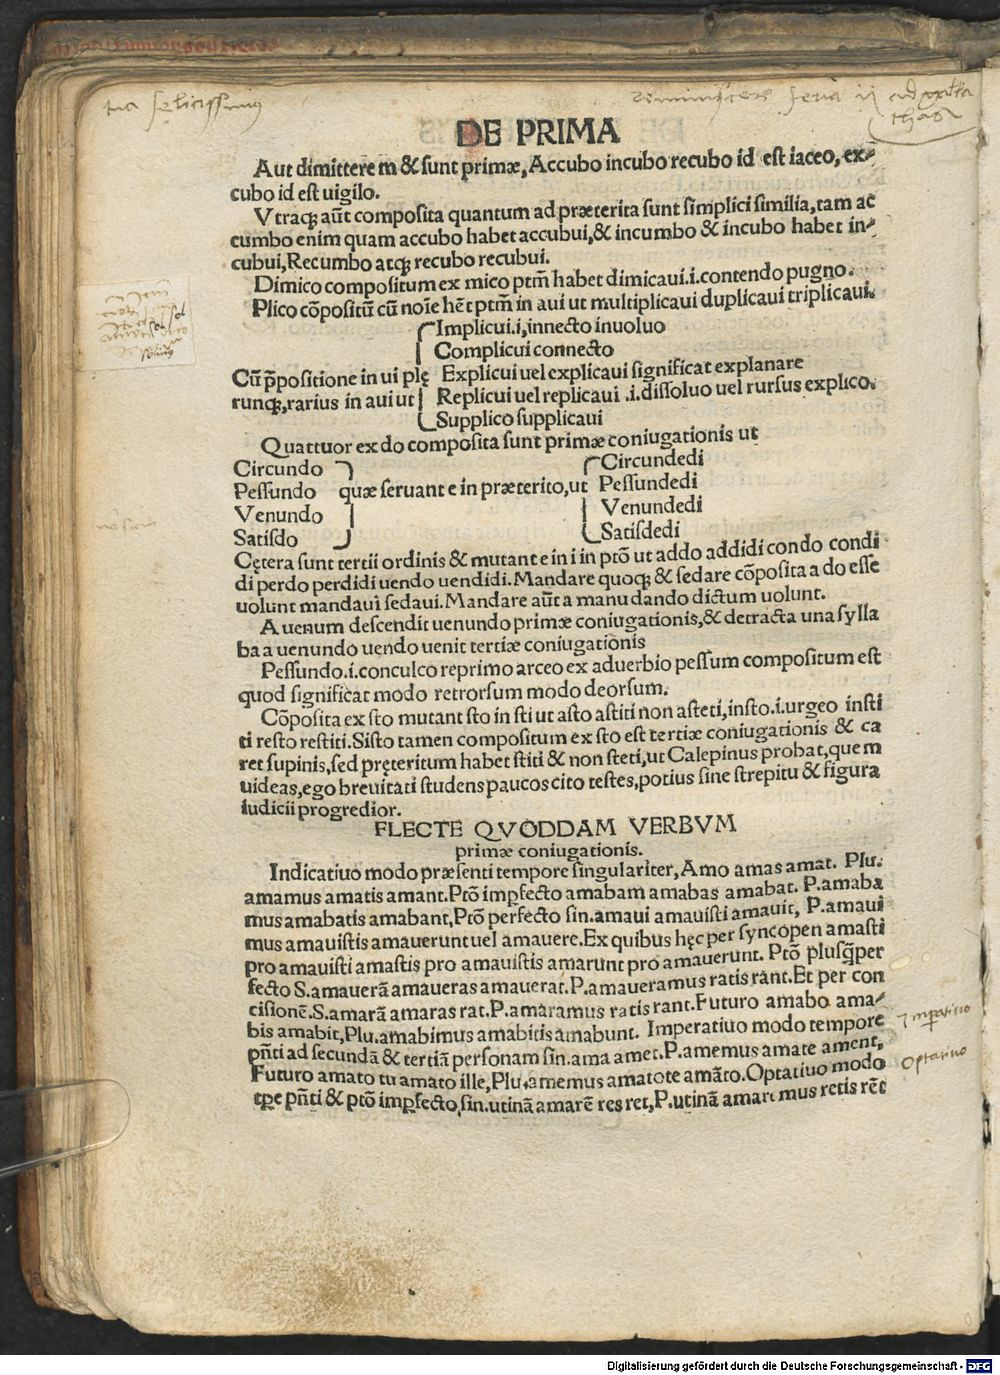 tua felicissimus
DE PRIMA
Aut dimittere m & sunt primæ, Accubo incubo recubo id est iaceo, ex⸗
cubo id est uigilo.
Vtraqꝫ aũt composita quantum ad præterita sunt simplici similia, tam ac
cumbo enim quam accubo habet accubui, & incumbo & incubo habet in⸗
cubui, Recumbo atqꝫ recubo recubui.
Dimico compositum ex mico ptm̃ habet dimicaui .i. contendo pugno.
Plico cõpositũ cũ noĩe hẽt ptm̃ in aui ut multiplicaui duplicaui triplicaui.
Implicui .i, innecto inuoluo
Complicui connecto
Cũ p̃positione in ui plę Explicui uel explicaui significat explanare
runqꝫ, rarius in aui ut Replicui uel replicaui .i. dissoluo uel rursus explico.
Supplico supplicaui
Quattuor ex do composita sunt primæ coniugationis ut
Circundo Circundedi
Pessundo quæ seruant e in præterito, ut Pessundedi
Venundo Venundedi
Satisdo Satisdedi
Cętera sunt tertii ordinis & mutant e in i in ptõ ut addo addidi condo condi
di perdo perdidi uendo uendidi. Mandare quoqꝫ & sedare cõposita a do esse
uolunt mandaui sedaui. Mandare aũt a manu dando dictum uolunt.
A uenum descendit uenundo primæ coniugationis, & detracta una sylla
ba a uenundo uendo uenit tertiæ coniugationis
Pessundo .i. conculco reprimo arceo ex aduerbio pessum compositum est
quod significat modo retrorsum modo deorsum.
Cõposita ex sto mutant sto in sti ut asto astiti non asteti, insto .i. urgeo insti
ti resto restiti. Sisto tamen compositum ex sto est tertiæ coniugationis & ca
ret supinis, sed pręteritum habet stiti & non steti, ut Calepinus probat, quem
uideas, ego breuitati studens paucos cito testes, potius sine strepitu & figura
iudicii progredior.
FLECTE QVODDAM VERBVM
primæ coniugationis.
Indicatiuo modo præsenti tempore singulariter, Amo amas amat. Plu.
amamus amatis amant. Ptõ imꝑfecto amabam amabas amabat. P. amaba
mus amabatis amabant, Ptõ perfecto sin. amaui amauisti amauit, P. amaui
mus amauistis amauerunt uel amauere. Ex quibus hęc per syncopen amasti
pro amauisti amastis pro amauistis amarunt pro amauerunt. Ptõ plusq̃per
fecto S. amauerã amaueras amauerat. P. amaueramus ratis rant. Et per con
cisionẽ. S. amarã amaras rat. P. amaramus ratis rant. Futuro amabo ama⸗
bis amabit, Plu. amabimus amabitis amabunt. Imperatiuo modo tempore
pñti ad secundã & tertiã personam sin. ama amet. P. amemus amate ament,
Futuro amato tu amato ille, Plu. amemus amatote amãto. Optatiuo modo
tꝑe pñti & ptõ imꝑfecto, sin. utinã amarẽ res ret, P. utinã amaremus retis rẽt
Imperativo
Optativo
Digitalisierung gefördert durch die Deutsche Forschungsgemeinschaft - DFG